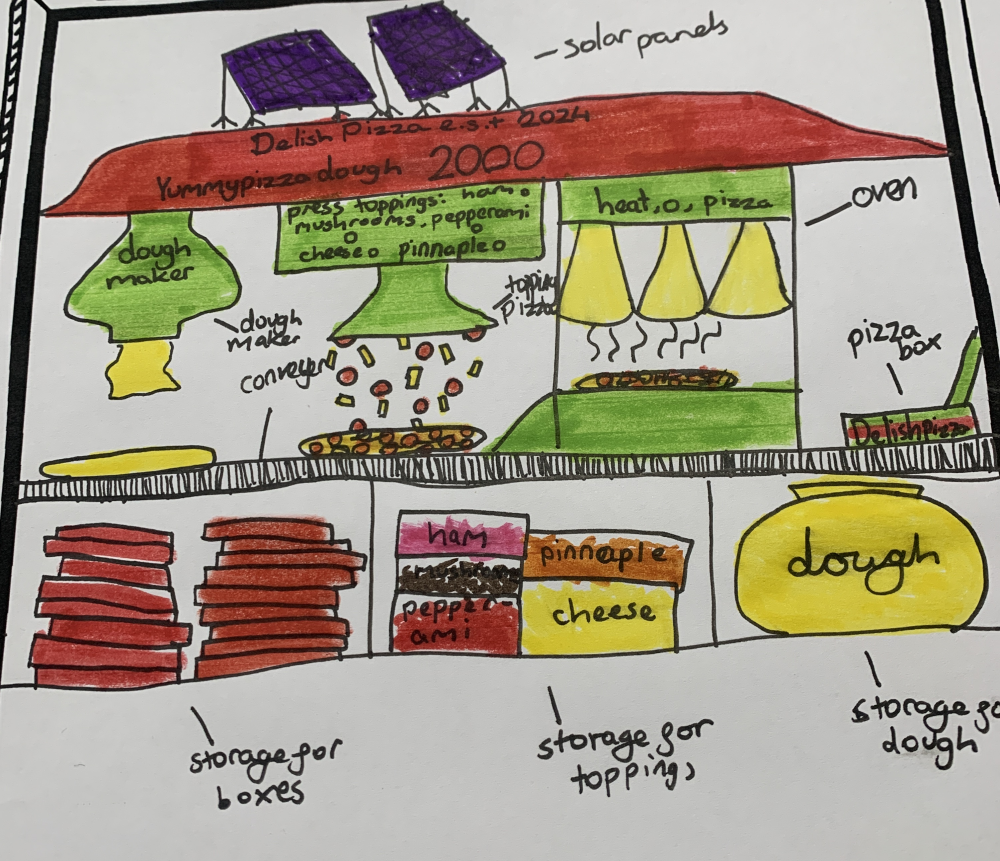 solar panels
Delish Pizza e.s.t 2024
Yummypizza dough 2000
press toppings: ham
mushrooms, pepperami
cheese pinnaple
heat, o, pizza
oven
dough
maker
dough
maker
topping
pizza
conveyer
pizza
box
Delishpizza
ham
mushroom
pepper-
ami
pinneaple
cheese
dough
storage for
boxes
storage for
toppings
storage fo
dough